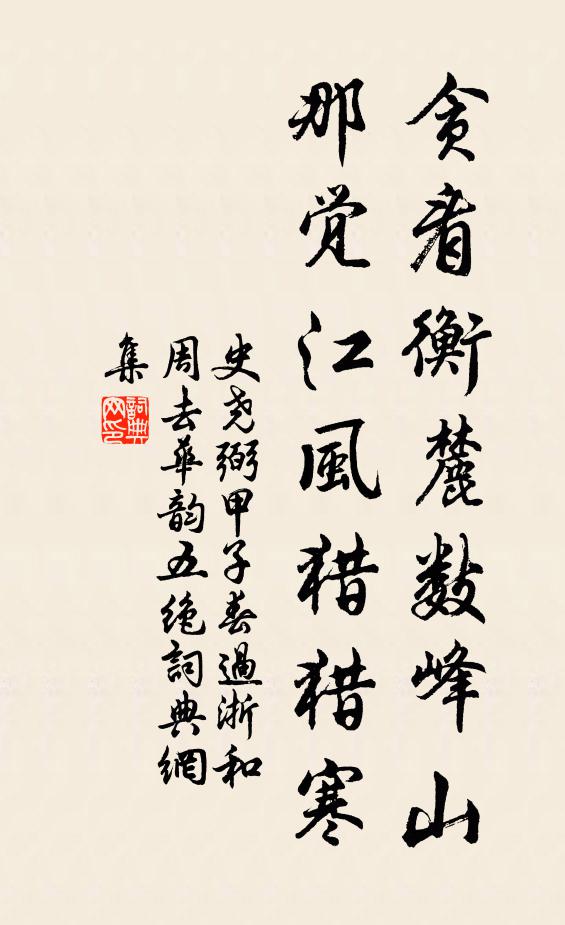 贪看衡麓数峰山
那觉江風猎猎寒
史尧弼甲子春過浙和
周去華韵五绝詞典網
集
詞典
网印